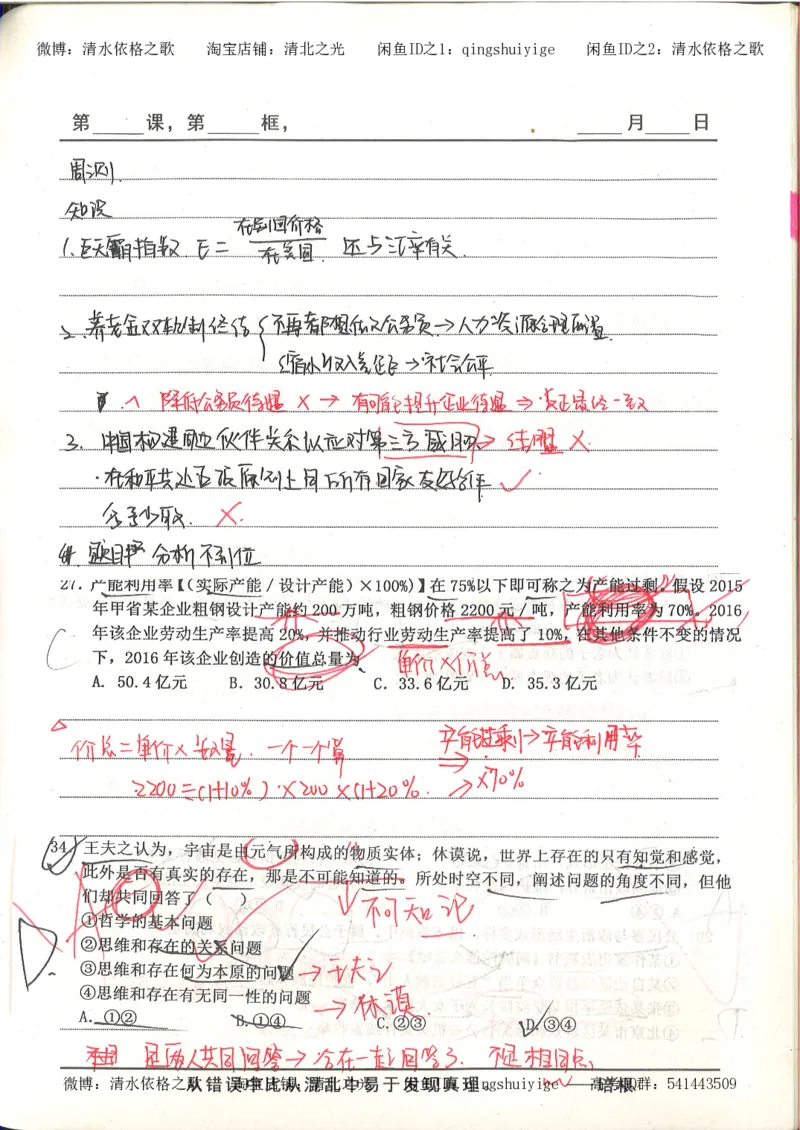 微博：清水依格之歌 淘宝店铺：清北之光 闲鱼ID之1：qingshuiyige 闲鱼ID之2：清水依格之歌
第 课，第 框， 月 日
周测
知识
在别国价格
1.巨无霸指数 E = 在美国 还与汇率有关.
2.养老金双轨制 不再都想做公务员→人力资源合理配置
缩小收入差距→社会公平
降低公务员待遇 × → 有可能提升企业待遇 ⇒
3.中国构建 伙伴关系以应对第三方威胁→结盟 ×.
·在和平共处五项原则上同所有国家友好合作 ✓
×.
题目 分析不到位
27．产能利用率【（实际产能／设计产能）×100%)】在 75%以下即可称之为产能过剩。假设 2015
年甲省某企业粗钢设计产能约 200 万吨，粗钢价格 2200 元／吨，产能利用率为 70%。2016
年该企业劳动生产率提高 20%，并推动行业劳动生产率提高了 10%，在其他条件不变的情况
下，2016 年该企业创造的价值总量为
C 单价×价总
A. 50.4 亿元 B. 30.8 亿元 C. 33.6 亿元 D. 35.3 亿元
价总=单价×数量. 一个一个算 产能过剩→产能利用率
2200÷(1+10%)×200×(1+20%. →×70%
34 王夫之认为，宇宙是由元气所构成的物质实体；休谟说，世界上存在的只有知觉和感觉，
此外是否有真实的存在，那是不可能知道的。所处时空不同，阐述问题的角度不同，但他
们却共同回答了（ ）
不可知论
①哲学的基本问题
②思维和存在的关系问题
③思维和存在何为本原的问题 →王夫之
④思维和存在有无同一性的问题 →休谟.
D
A. ①② B.①④ C.②③ D.③④
是两人共同回答→合在一起回答了. 不是相同点
微博：清水依格之歌 从错误中比从混乱中易于发现真理。 ——培根 高考QQ群：541443509